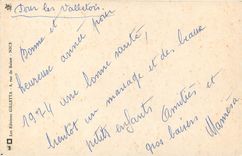 Pour les Valletois
Bonne et
heureuse année pour
1974 une bonne santé,
bientôt un mariage et des beaux
petits enfants Amitiés et
nos baisers
Les Editions GILLETTA - NICE